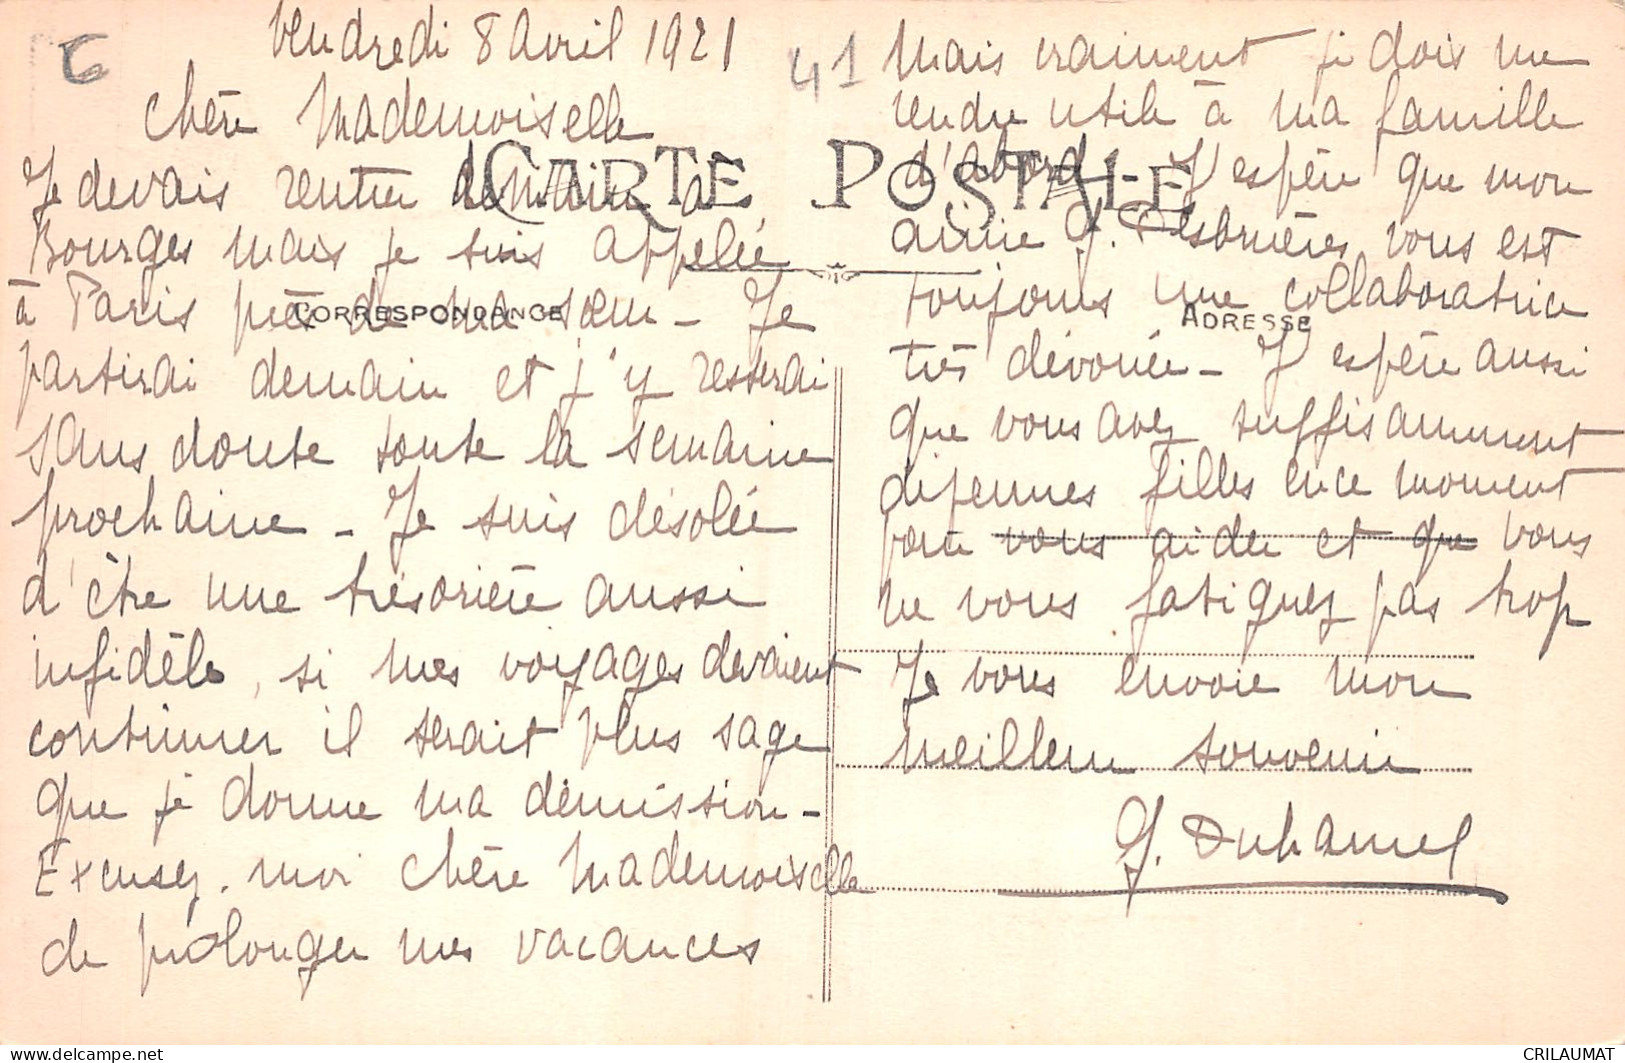 Vendredi 8 Avril 1921
Chère Mademoiselle
Je devais rentrer demain à
Bourges mais je suis appelée
à Paris près de ma sœur - Je
partirai demain et j'y resterai
sans doute toute la semaine
prochaine - Je suis désolée
d'être une trésorière aussi
infidèle, si mes voyages devaient
continuer il serait plus sage
que je donne ma démission -
Excusez-moi chère Mademoiselle
de prolonger mes vacances
6
41
Mais vraiment je dois me
rendre utile à ma famille
d'abord - J'espère que mon
amie G. Desbruères vous est
toujours une collaboratrice
très dévouée - J'espère aussi
que vous avez suffisamment
de jeunes filles en ce moment
pour vous aider et que vous
ne vous fatiguez pas trop
Je vous envoie mon
meilleur souvenir
G. Duhamel
CARTE POSTALE
CORRESPONDANCE
ADRESSE
delcampe.net
CRILAUMAT